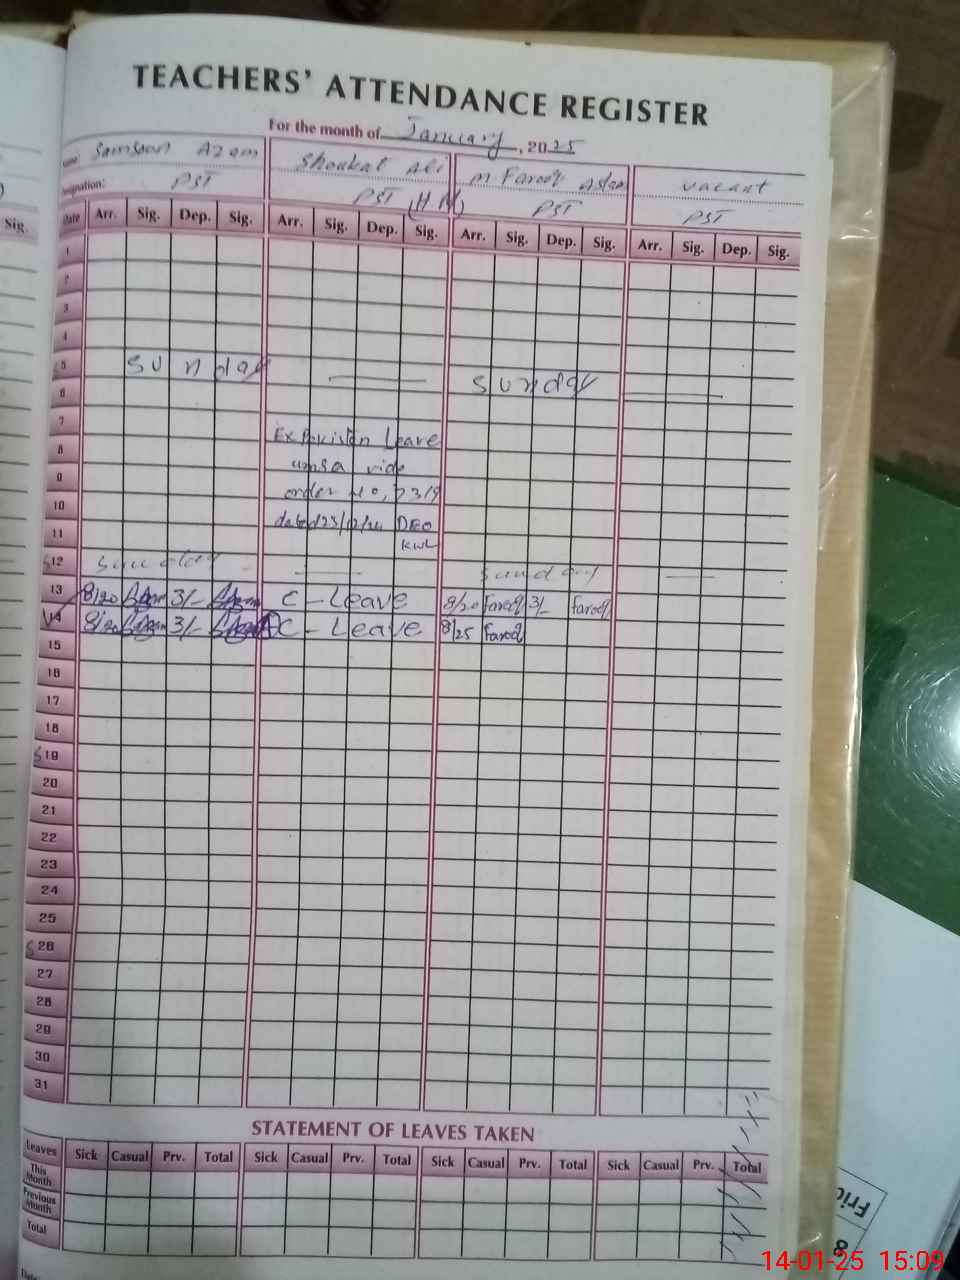 TEACHERS' ATTENDANCE REGISTER
For the month of January, 2025
Name: Samsoon Azam Shoukat Ali M Farooq Aslam vacant
Designation: PST PST (H.M) PST PST
Sig.
Date Arr. Sig. Dep. Sig. Arr. Sig. Dep. Sig. Arr. Sig. Dep. Sig. Arr. Sig. Dep. Sig.
1
2
3
4
5 Sunday Sunday
6
7
8 Ex Pakistan Leave
9 vide
10 order No,
11 dated 23/12/24 DEO
KWL
S12 Sunday Sunday
13 8/20 Azam 3/- Azam C-Leave 8/20 Farooq 3/- Farooq
14 8/20 Azam 3/- Azam C-Leave 8/25 Farooq
15
16
17
18
S19
20
21
22
23
24
25
S26
27
28
29
30
31
STATEMENT OF LEAVES TAKEN
Leaves Sick Casual Prv. Total Sick Casual Prv. Total Sick Casual Prv. Total Sick Casual Prv. Total
This Month
Previous Month
Total
8
14-01-25 15:09